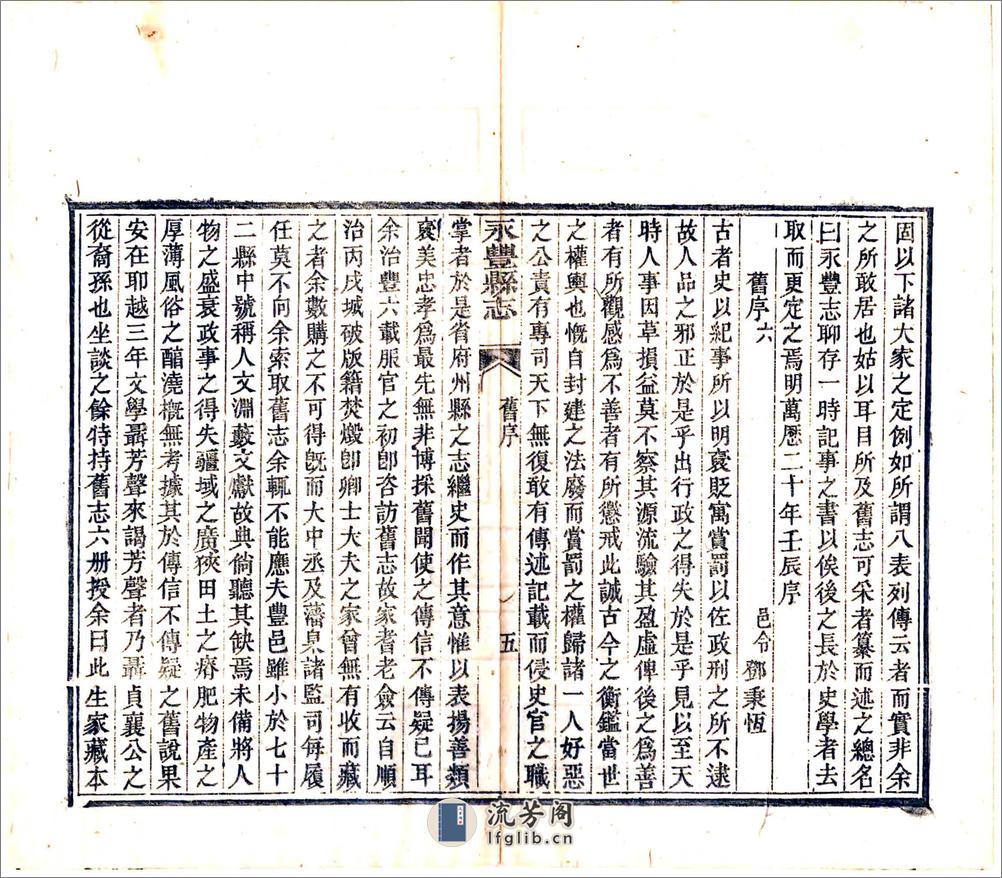 固以下諸大家之定例如所謂八表列傳云者而實非余
之所敢居也姑以耳目所及舊志可采者纂而述之總名
曰永豐志聊存一時記事之書以俟後之長於史學者去
取而更定之焉明萬曆二十年壬辰序
舊序六
邑令 鄧秉恆
古者史以紀事所以明褒貶寓賞罰以佐政刑之所不逮
故人品之邪正於是乎出行政之得失於是乎見以至天
時人事因草損益莫不察其源流驗其盈虛俾後之為善
者有所觀感為不善者有所懲戒此誠古今之衡鑑當世
之權輿也慨自封建之法廢而賞罰之權歸諸一人好惡
之公責有專司天下無復敢有傳述記載而侵史官之職
永豐縣志
舊序
五
掌者於是省府州縣之志繼史而作其意惟以表揚善類
褒美忠孝為最先無非博採舊聞使之傳信不傳疑已耳
余治豐六載服官之初卽咨訪舊志故家耆老僉云自順
治丙戌城破版籍焚燬卽卿士大夫之家曾無有收而藏
之者余數購之不可得旣而大中丞及藩臬諸監司每履
任莫不向余索取舊志余輒不能應夫豐邑雖小於七十
二縣中號稱人文淵藪文獻故典倘聽其缺焉未備將人
物之盛衰政事之得失疆域之廣狹田土之瘠肥物產之
厚薄風俗之醕澆槪無考據其於傳信不傳疑之舊說果
安在耶越三年文學聶芳聲來謁芳聲者乃聶貞襄公之
從裔孫也坐談之餘特持舊志六册授余曰此生家藏本
流芳阁
lfglib.cn